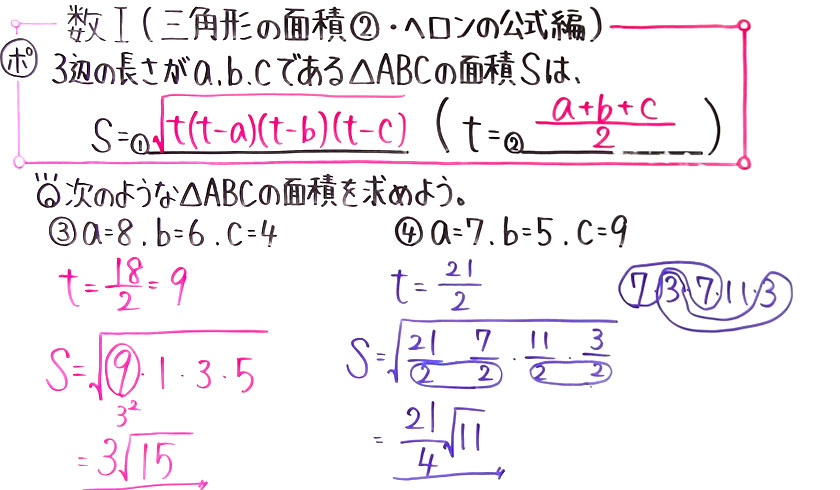 数Ⅰ(三角形の面積②・ヘロンの公式編)
ポ 3辺の長さがa.b.cである△ABCの面積Sは、
S=①√t(t-a)(t-b)(t-c) (t=②a+b+c/2)
次のような△ABCの面積を求めよう。
③a=8.b=6.c=4
t=18/2=9
S=√9・1・3・5
3²
=3√15
④a=7.b=5.c=9
t=21/2
7・3・7・11・3
S=√21/2 7/2・11/2・3/2
=21/4√11